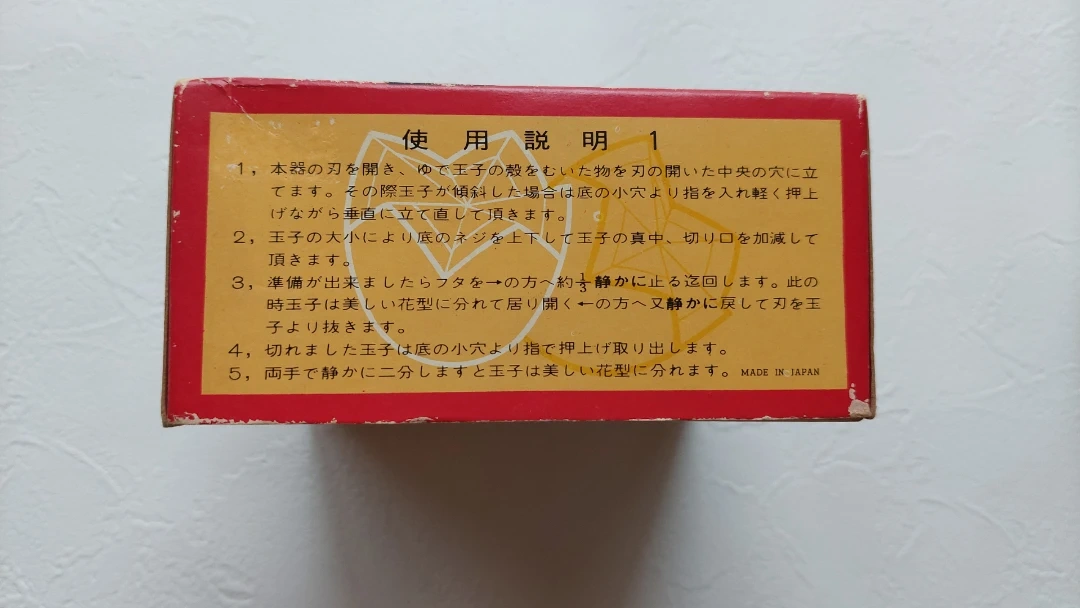 使用説明 1
1, 本器の刃を開き、ゆで玉子の殻をむいた物を刃の開いた中央の穴に立
てます。その際玉子が傾斜した場合は底の小穴より指を入れ軽く押上
げながら垂直に立て直して頂きます。
2, 玉子の大小により底のネジを上下して玉子の真中、切り口を加減して
頂きます。
3, 準備が出来ましたらフタを→の方へ約1/3静かに止る迄回します。此の
時玉子は美しい花型に分れて居り開く←の方へ又静かに戻して刃を玉
子より抜きます。
4, 切れました玉子は底の小穴より指で押上げ取り出します。
5, 両手で静かに二分しますと玉子は美しい花型に分れます。 MADE IN JAPAN